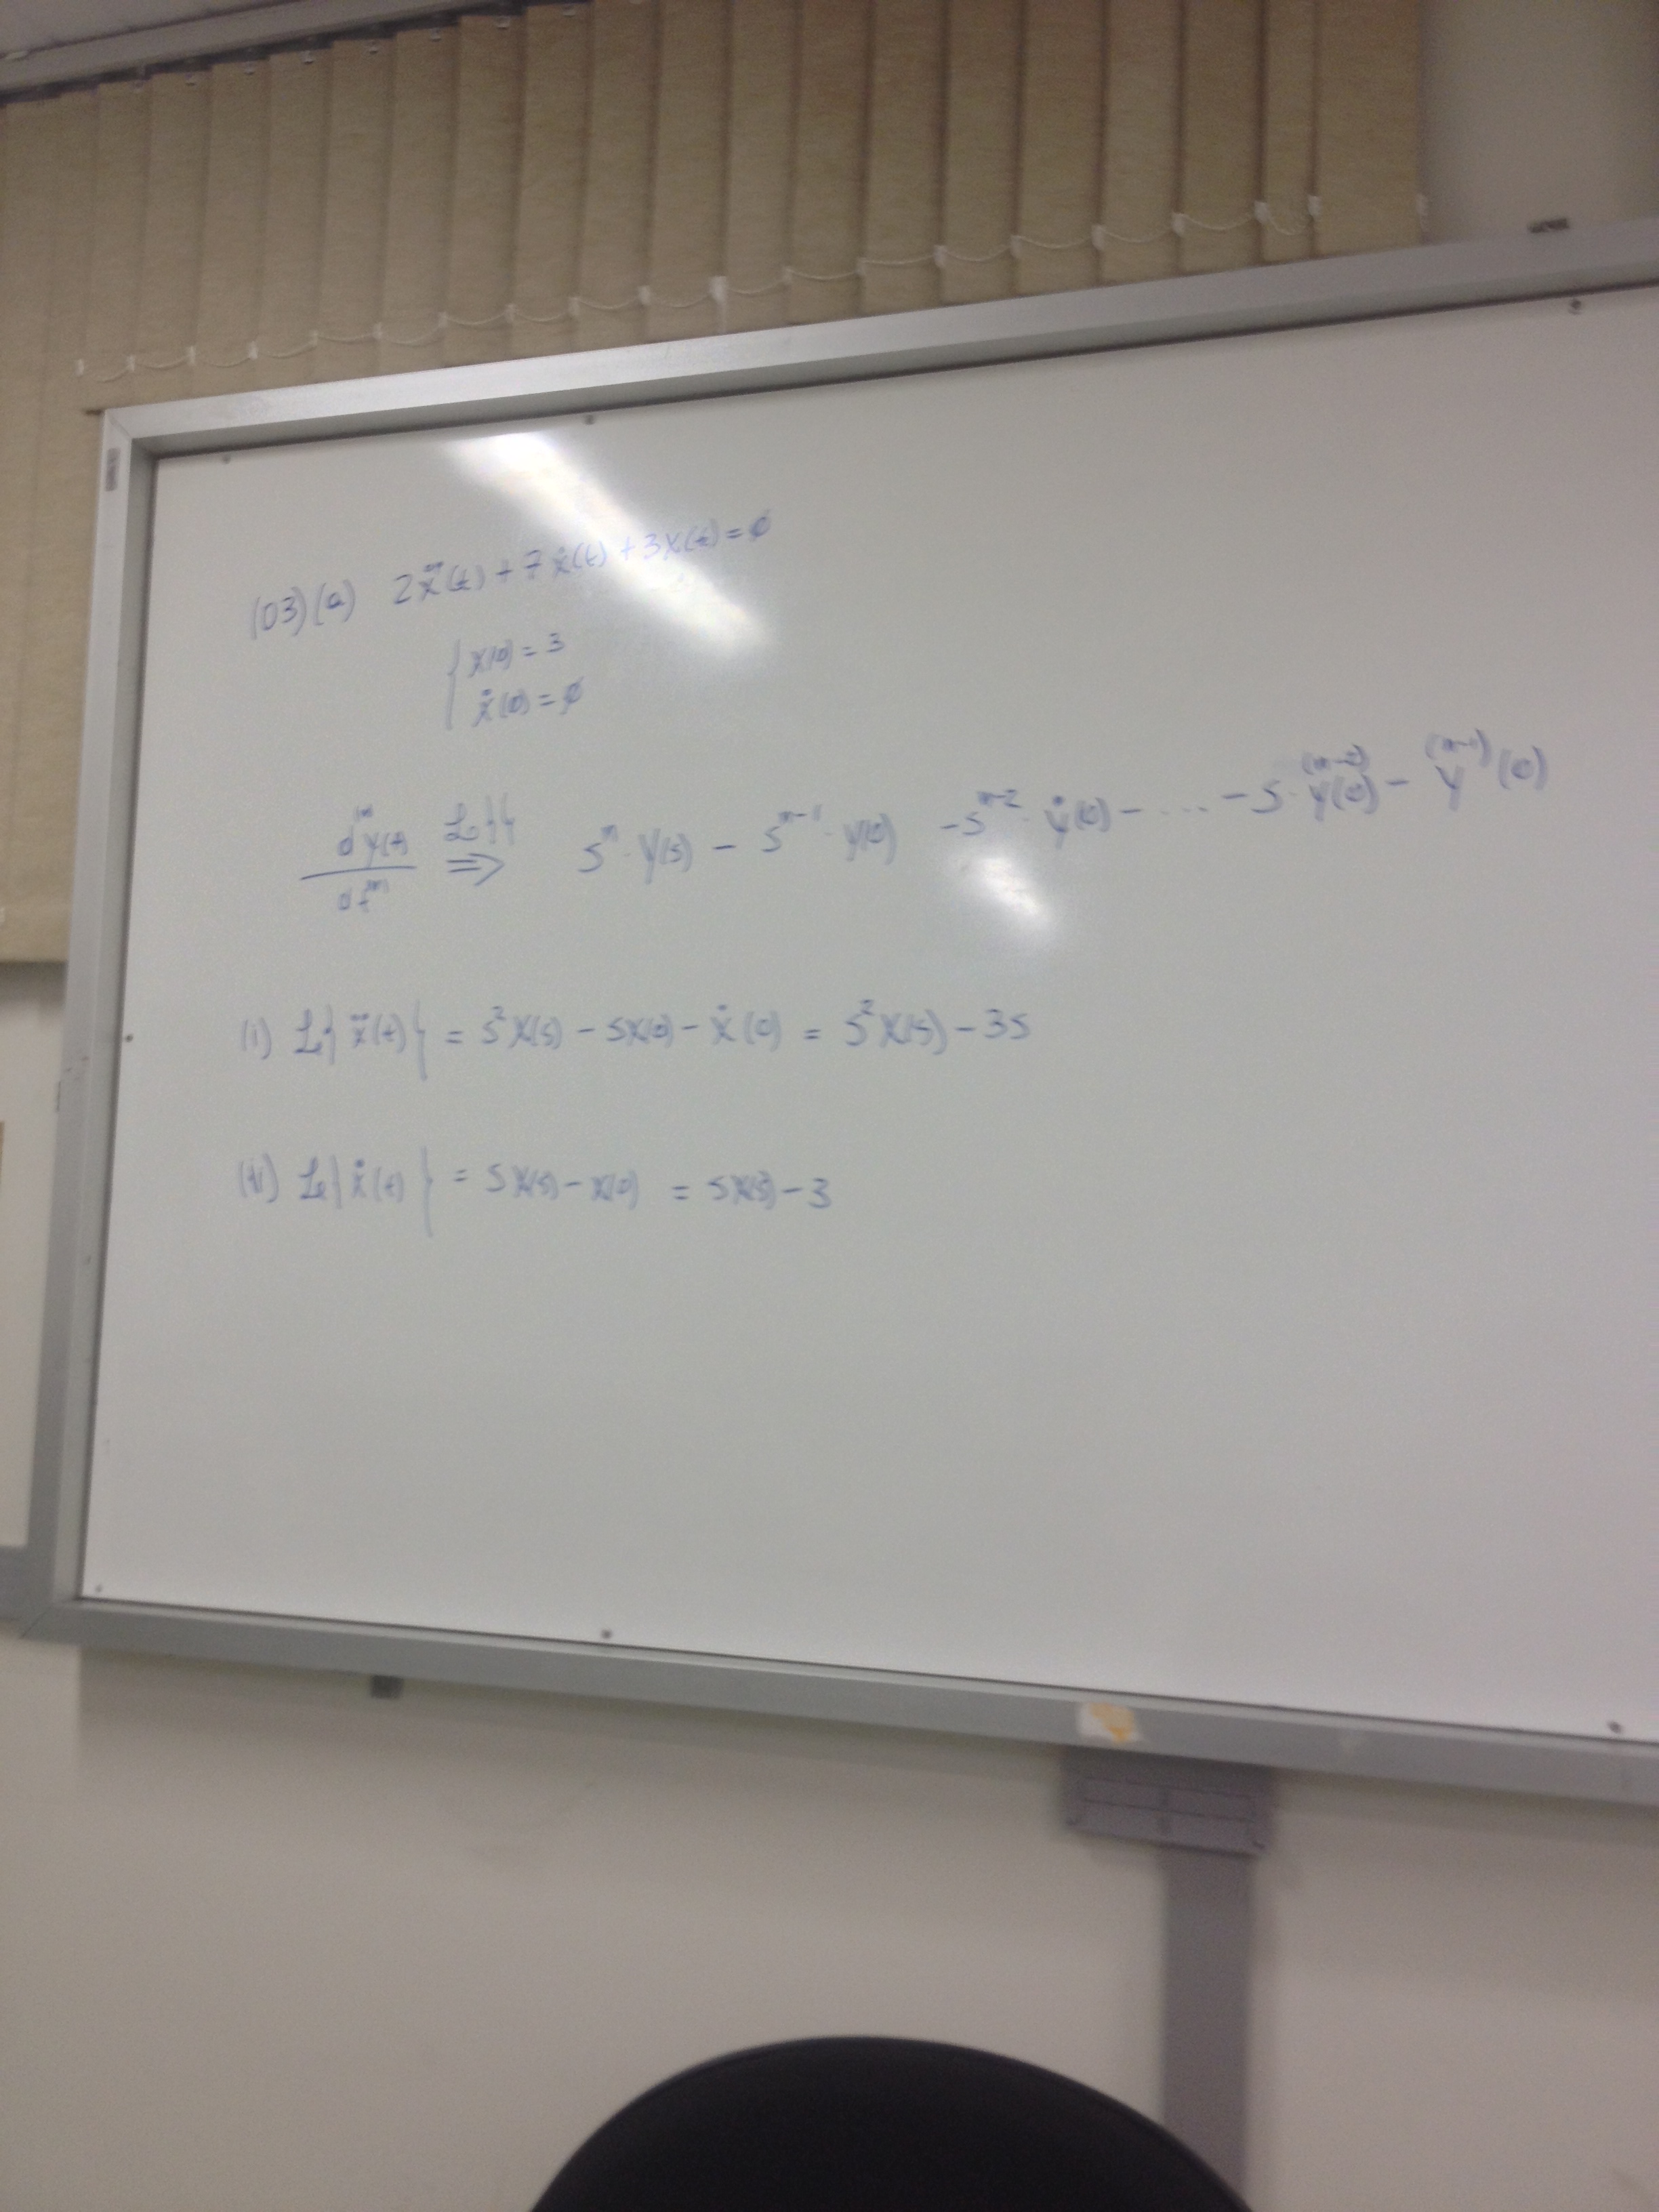 (03)(a) 2ẍ(t) + 7ẋ(t) + 3x(t) = ∅
{ x(0) = 3
ẋ(0) = ∅
dⁿy(t)/dtⁿ ℒ{} ⇒ sⁿ · Y(s) − sⁿ⁻¹ · y(0) − sⁿ⁻² · ẏ(0) − .... − s · y⁽ⁿ⁻²⁾(0) − y⁽ⁿ⁻¹⁾(0)
(i) ℒ{ẍ(t)} = s²X(s) − sx(0) − ẋ(0) = s²X(s) − 3s
(ii) ℒ{ẋ(t)} = sX(s) − x(0) = sX(s) − 3